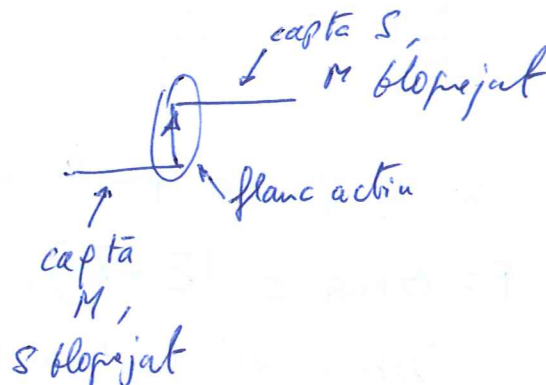 capta S,
M bloquejat
flanc actiu
capta
M,
S bloquejat